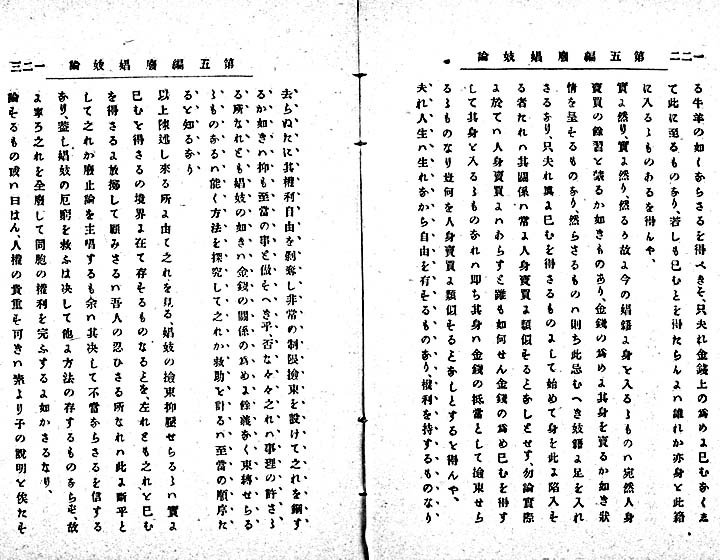 一二二 第五編廢娼妓論
る牛羊の如くならさるを得べきそ、只夫れ金錢上の爲めよ已むなくして
て此に至るものあり、若しも已むことを得たらんよハ誰れか亦身と此籍
に入るゝものあるを得んや、
實よ然り、實よ然り、然るゝ故よ今の娼籍よ身を入るゝものハ宛然人身
賣買の餘習と禁るか如きものあり、金錢の爲めよ其身を賣るか如き狀
情を呈そるものあり、然らさるものハ則ち此忌むへき妓籍よ足を入れ
さるあり、只夫れ萬よ已むを得さるものよして始めて身を此よ陷入そ
る者たれハ其關係ハ常よ人身賣買よ類似そるとなしとせす、勿論實際
よ於てハ人身賣買よハあらすと雖も如何せん金錢の爲め已むを得す
して其身と入るゝものなれハ即ち其身ハ金錢の抵當として撿束せら
るゝものなり豈何を人身賣買よ類似そるとなしとするを得んや、
夫れ人生ハ生れなから自由を有そるものあり、權利を持するものなり
第五編廢娼妓論 一二三
去らぬたに其權利自由を剝奪し非常の制限撿束を設けて之れを錮す
るか如きハ抑も至當の事と做そへき乎、否な々々之れハ事理の許さゝ
る所なれとも娼妓の如きハ金錢の關係の爲めよ餘義なく束縛せらる
ゝものあるハ能く方法を探究して之れか救助と計るハ至當の順序た
ると知るなり
以上陳述し來る所よ由て之れを見る、娼妓の撿束抑壓せらるゝハ實よ
已むを得さるの境界よ在て存そるものなると を、左れとも之れと已む
を得さるよ放擲して顧みさるハ吾人の忍ひさる所なれハ此よ斷乎と
して之れか廢止論を主唱するも余ハ其决して不當ならさるを信する
なり、蓋し娼妓の厄窮を救ふは决して他よ方法の存するものならそ、故
よ寧ろ之れを全廢して同胞の權利を完ふするよ如かさるなり、
論そるもの或ハ曰はん、人權の貴重そ可きハ素より子の說明と俟たそ